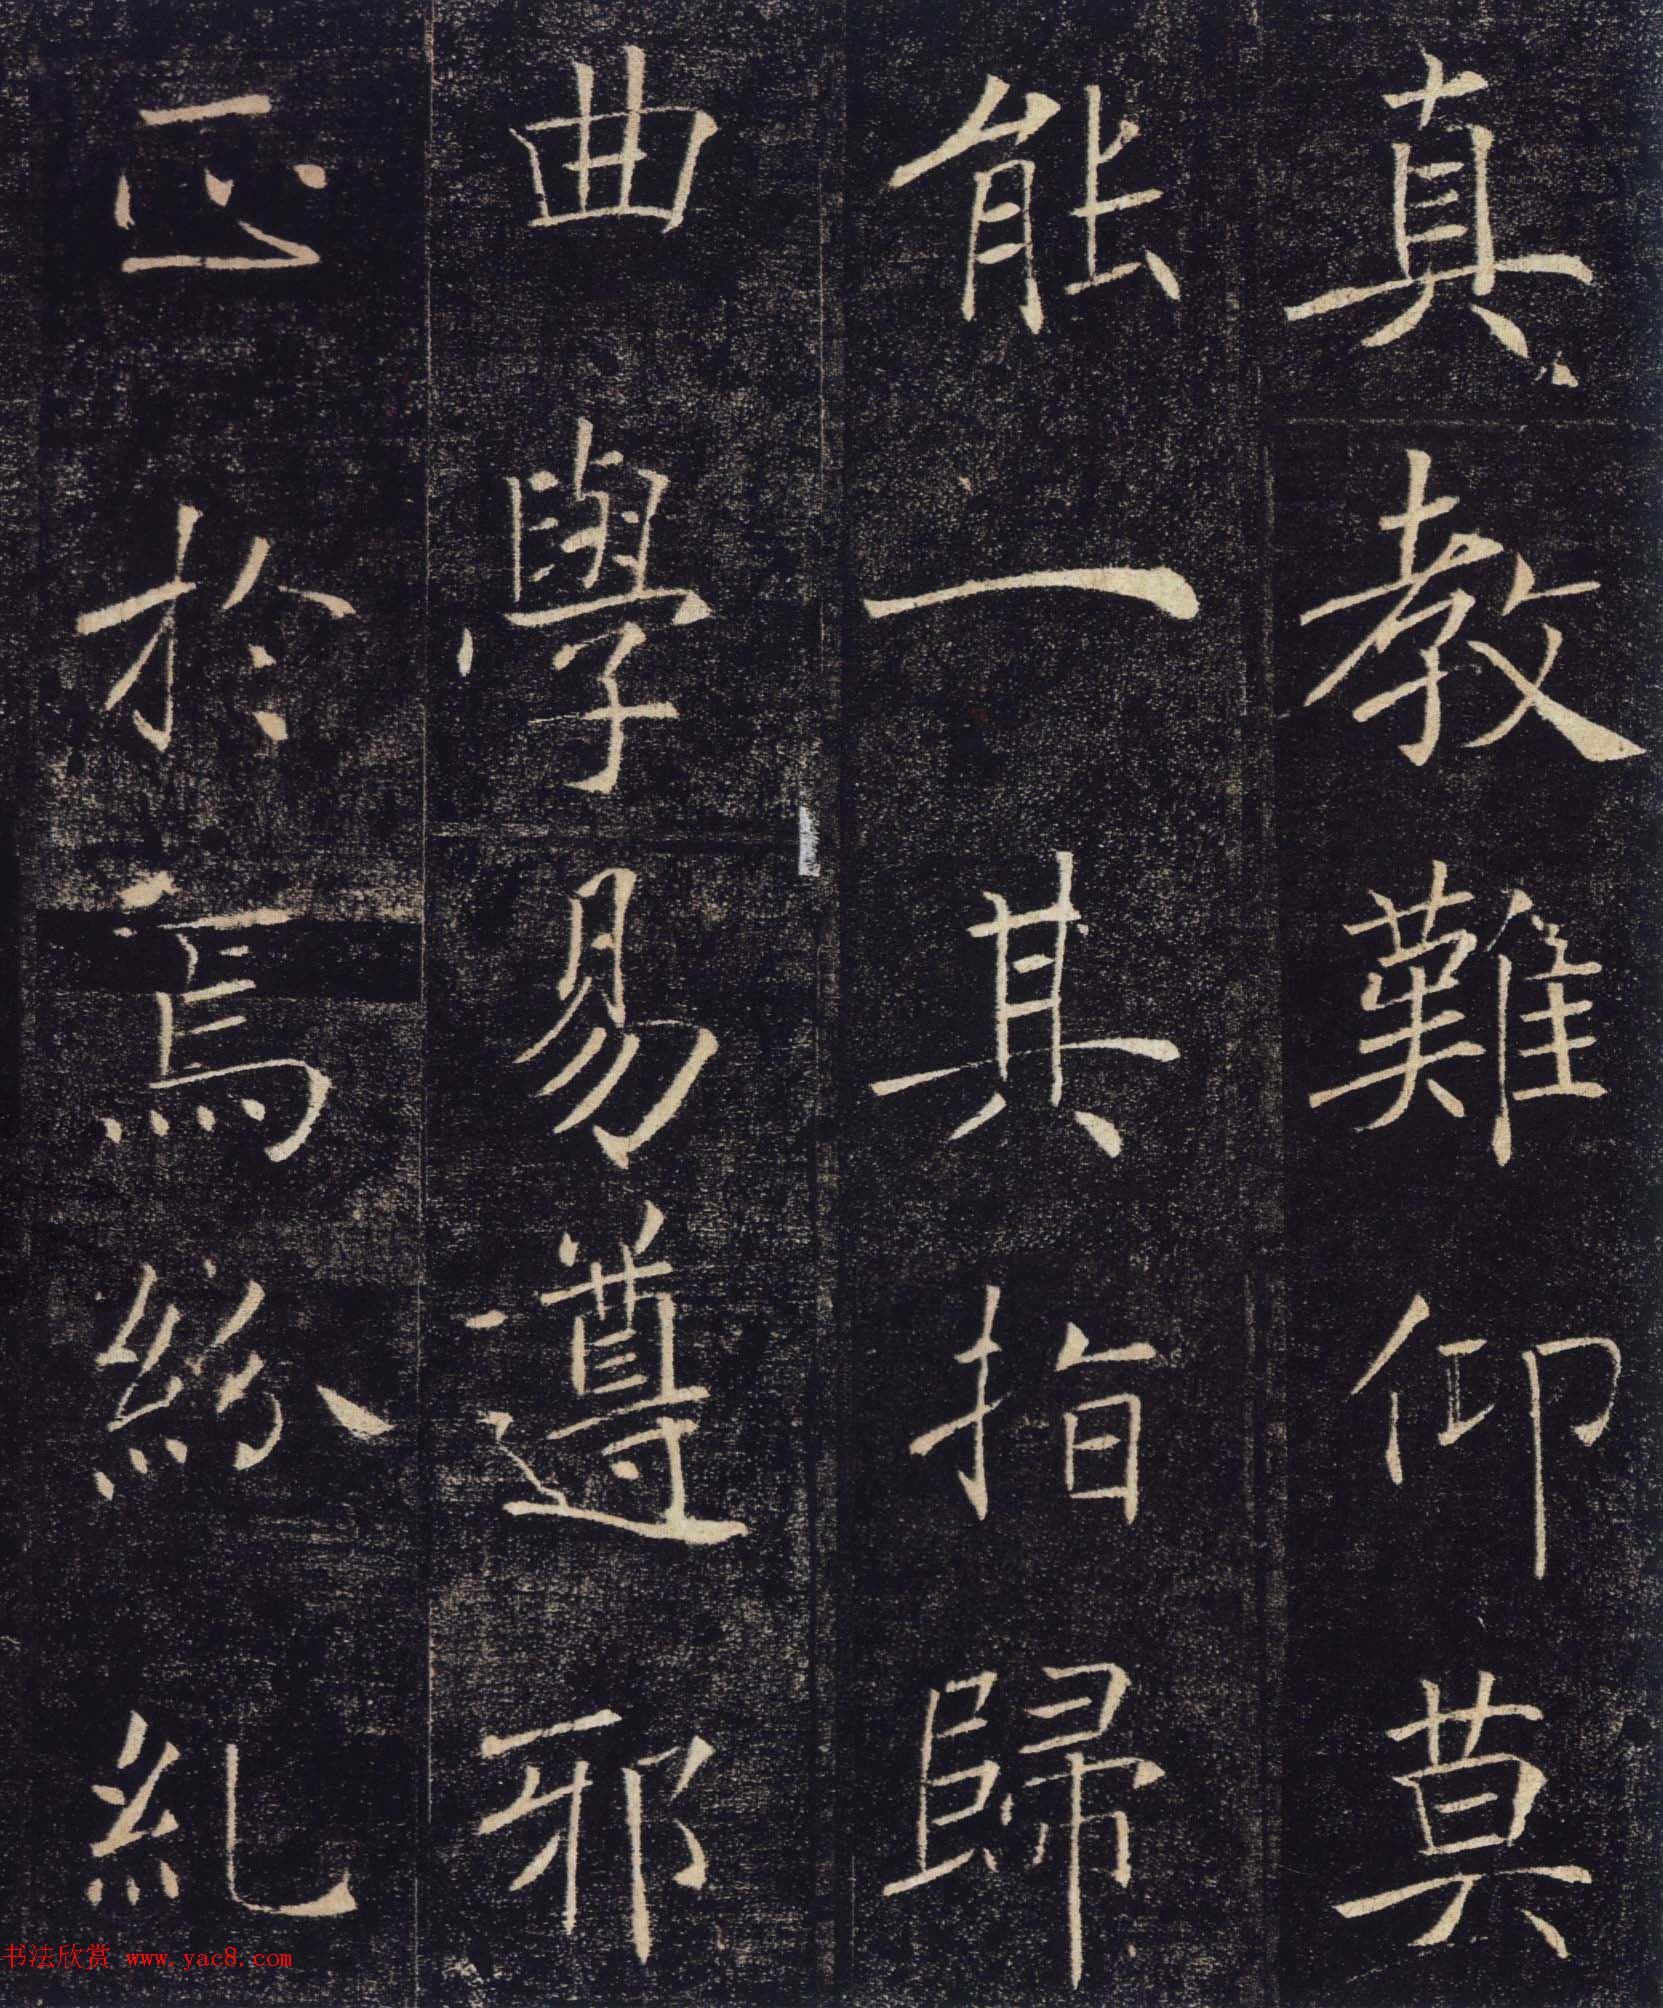 真教難仰莫
能一其指歸
曲學易遵邪
正於焉紛糺
书法欣赏 www.yac8.com